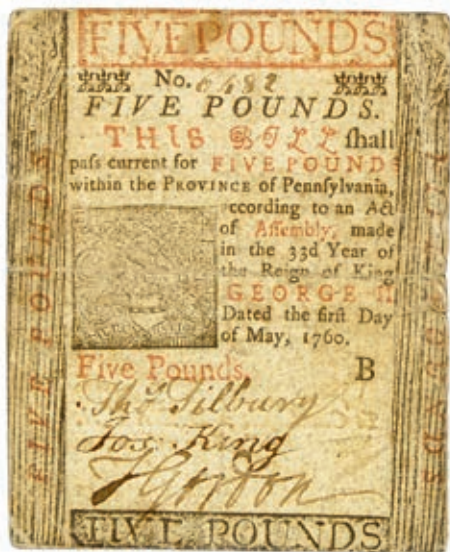 FIVE POUNDS
No. 6482
FIVE POUNDS.
THIS BILL ſhall
paſs current for FIVE POUNDS
within the PROVINCE of Pennſylvania,
ccording to an Act
of Aſſembly, made
in the 33d Year of
the Reign of King
GEORGE II
Dated the firſt Day
of May, 1760.
Five Pounds. B
Thos Tilbury
Jos. King
Gordon
FIVE POUNDS
FIVE POUNDS